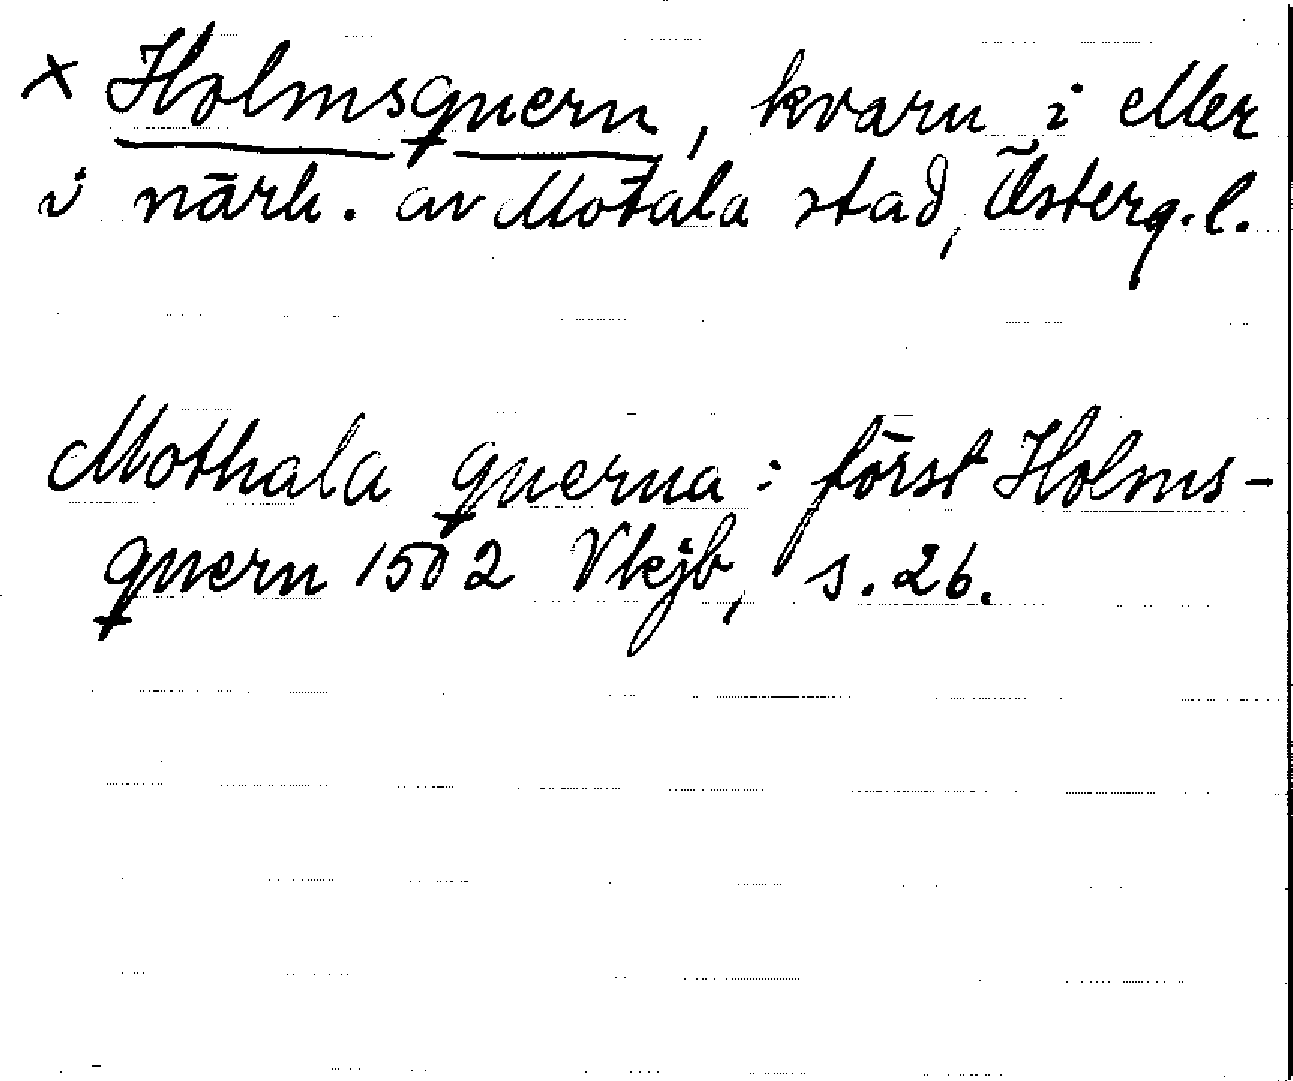 x Holmsquern, kvarn i eller
i närh. av Motala stad, Österg.l.
Mothala querna : först Holms-
quern 1502 Vkjb, s. 26.